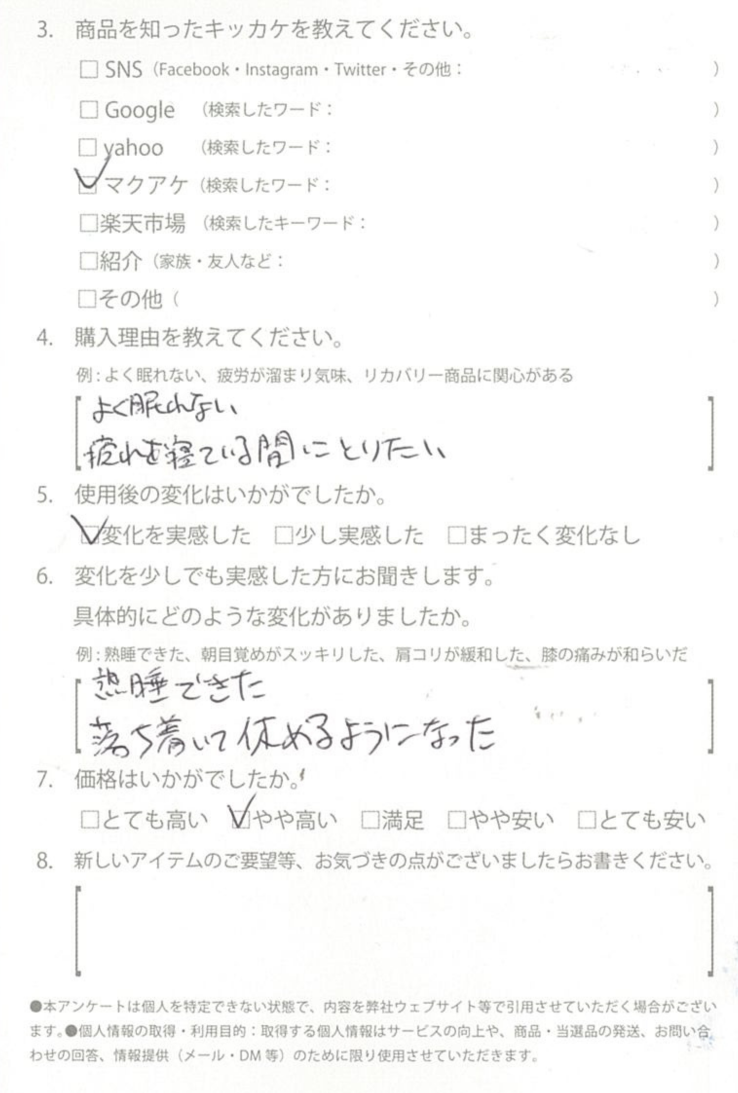 3. 商品を知ったキッカケを教えてください。
□ SNS（Facebook・Instagram・Twitter・その他： ）
□ Google （検索したワード： ）
□ yahoo （検索したワード： ）
☑ マクアケ（検索したワード： ）
□楽天市場 （検索したキーワード： ）
□紹介（家族・友人など： ）
□その他（ ）
4. 購入理由を教えてください。
例：よく眠れない、疲労が溜まり気味、リカバリー商品に関心がある
よく眠れない
疲れを寝ている間にとりたい
5. 使用後の変化はいかがでしたか。
☑変化を実感した □少し実感した □まったく変化なし
6. 変化を少しでも実感した方にお聞きします。
具体的にどのような変化がありましたか。
例：熟睡できた、朝目覚めがスッキリした、肩コリが緩和した、膝の痛みが和らいだ
熟睡できた
落ち着いて休めるようになった
7. 価格はいかがでしたか。
□とても高い ☑やや高い □満足 □やや安い □とても安い
8. 新しいアイテムのご要望等、お気づきの点がございましたらお書きください。
●本アンケートは個人を特定できない状態で、内容を弊社ウェブサイト等で引用させていただく場合がござい
ます。●個人情報の取得・利用目的：取得する個人情報はサービスの向上や、商品・当選品の発送、お問い合
わせの回答、情報提供（メール・DM 等）のために限り使用させていただきます。